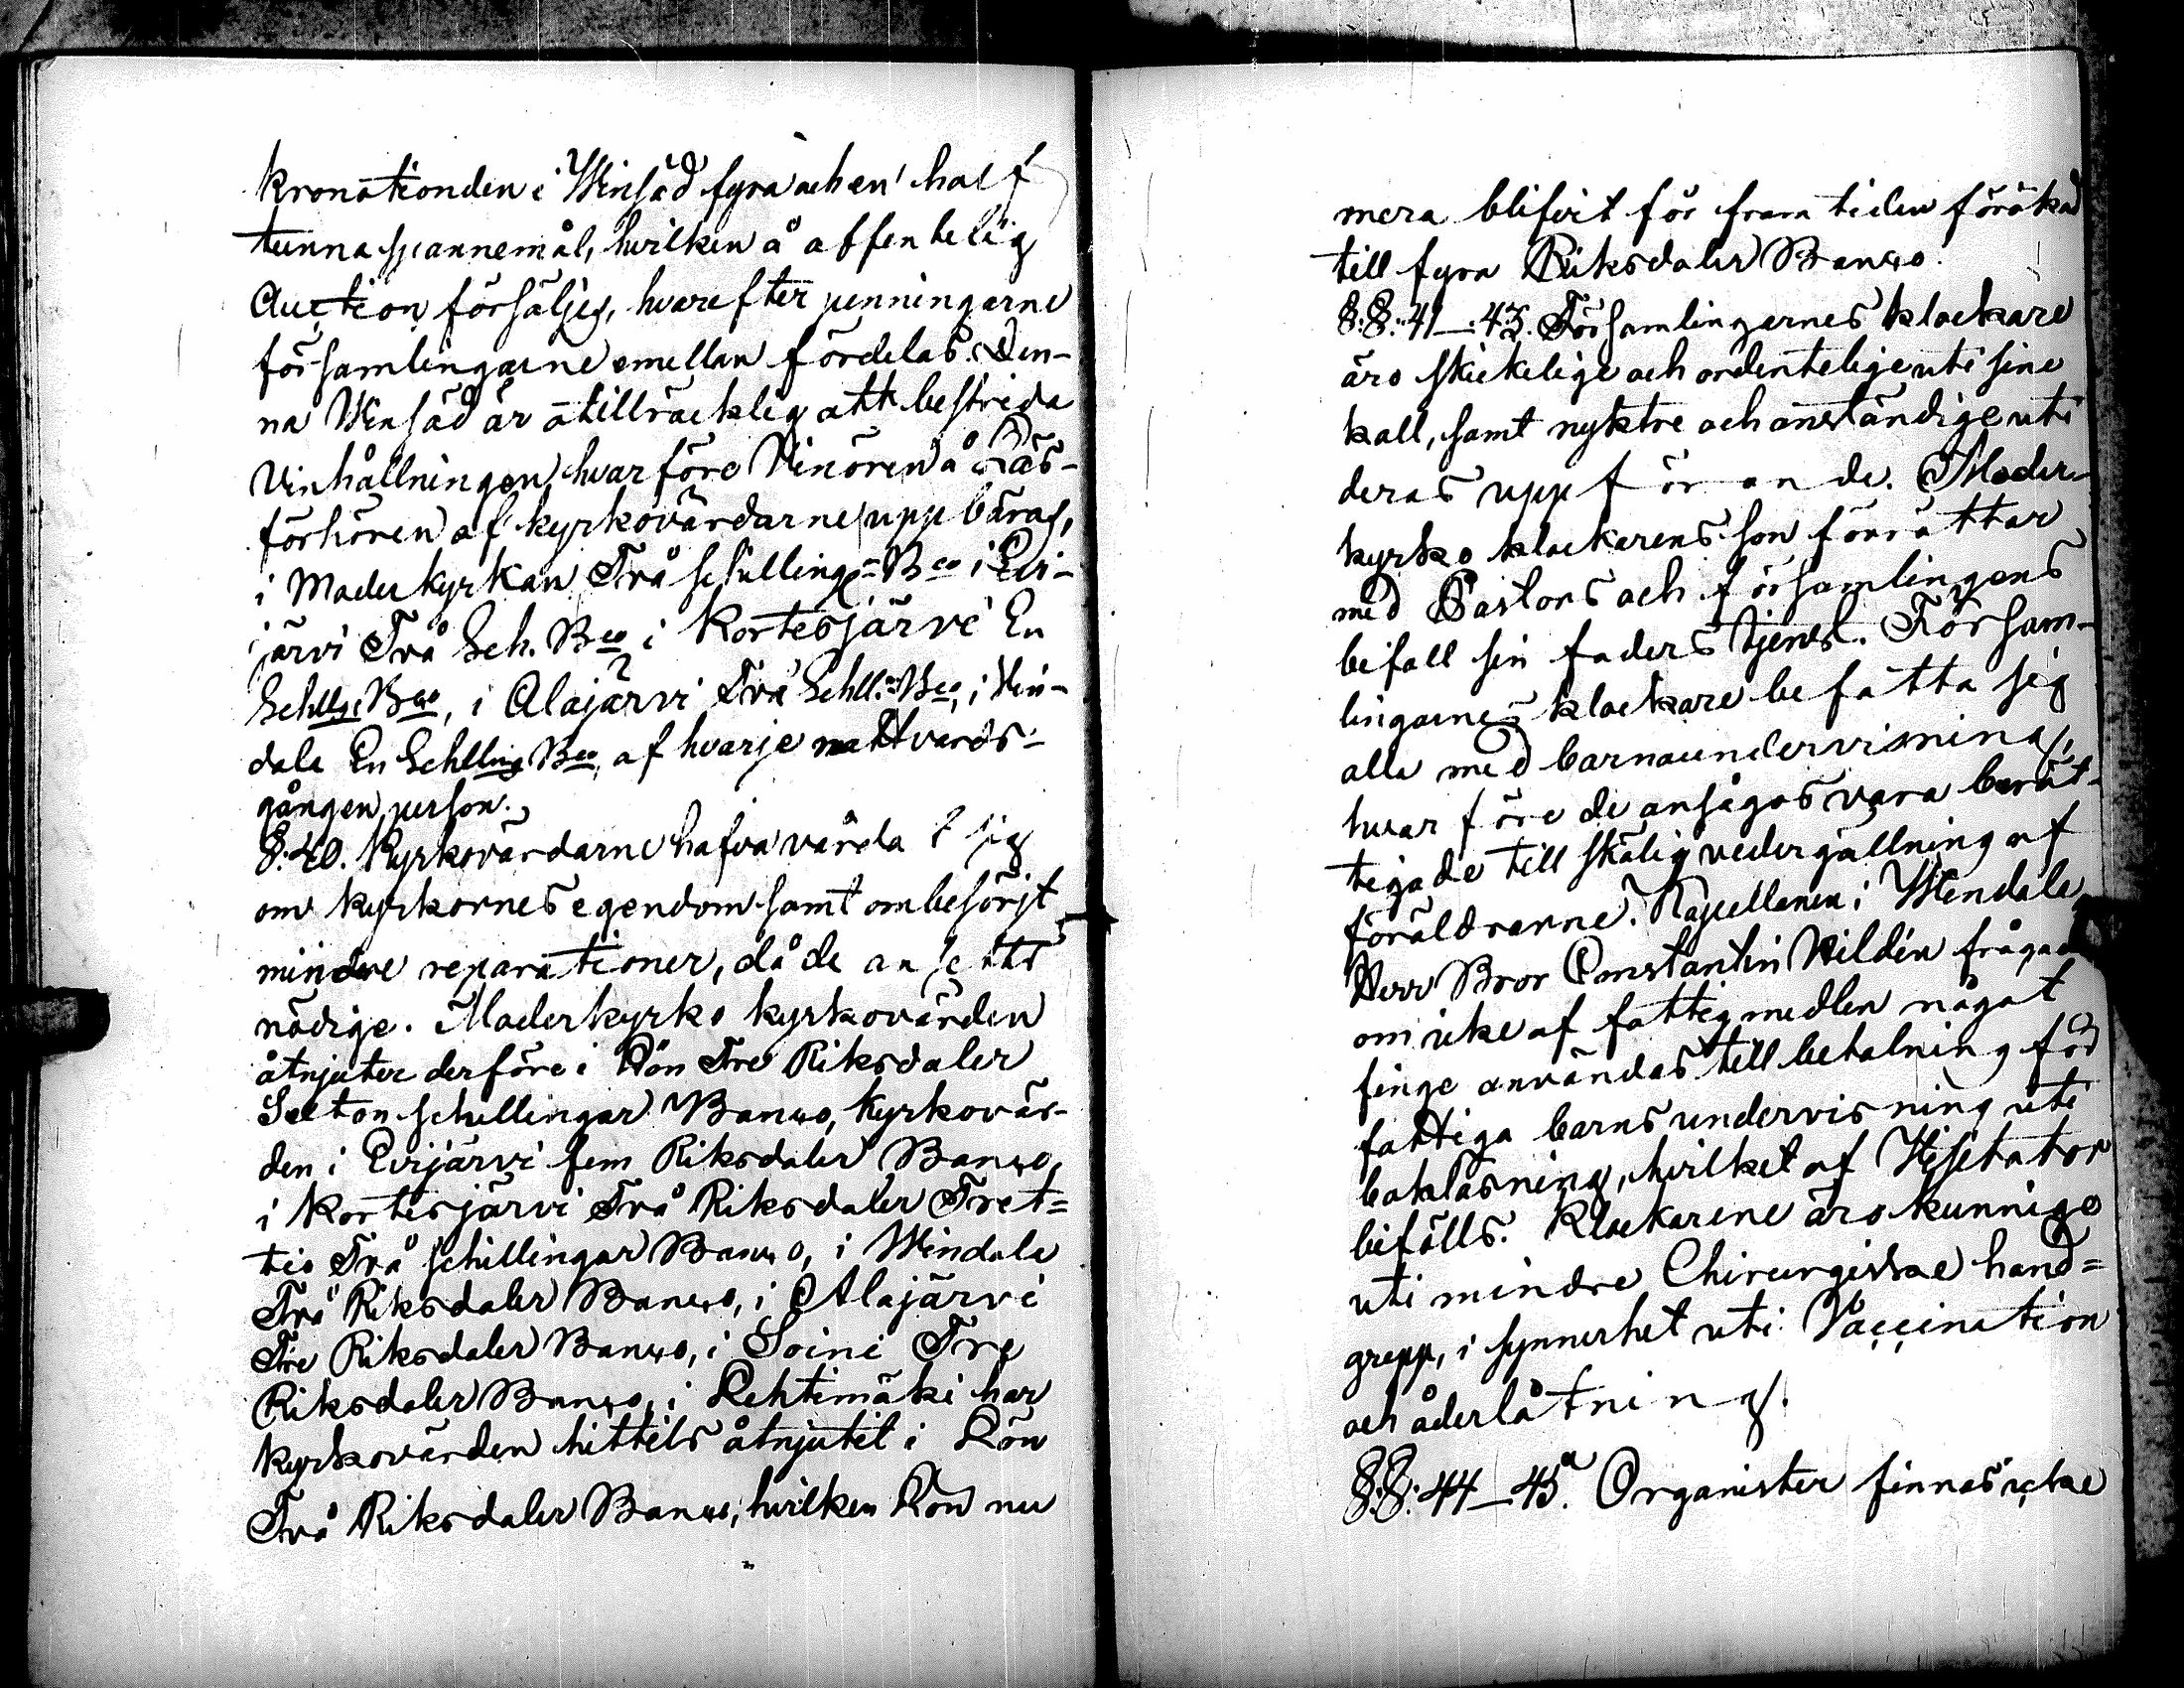 kronotionden i Winsäd fyra och en half
tunna spannemål, hvilken å offentelig
Auction försäljes, hvarefter penningarne
församlingarne emellan fördelas. Den-
na Winsäd är otillräcklig att bestrida
Vinhållningen, hvarföre Vinören å Läs-
förhören af kyrkovärdarne uppbäras,
i Moderkyrkan Två schillingr Bco i Evi-
järvi Två Sch. Bco i Kortesjärvi En
Schllg. Bco, i Alajärvi Två Schll.r Bco, i Vin-
dala En Schlling Bco, af hvarje nattvards-
gången person.
§. 40. Kyrkovärdarne hafva vårda t sig
om kyrkornes egendom samt ombesörjt
mindre reparationer, då de ansetts
nödige. Moderkyrko kyrkovärden
åtnjuter derföre i Lön Tre Riksdaler
Sexton schillingar Banco, Kyrkovär-
den i Evijärvi fem Riksdaler Banco,
i Kortesjärvi Två Riksdaler Tret=
tio Två schillingar Banco, i Windala
Två Riksdaler Banco, i Alajärvi
Tre Riksdaler Banco, i Soini Tre
Riksdaler Banco, i Lehtimäki har
kyrkovärden hittils åtnjutit i Lön
Två Riksdaler Banco, hvilken Lön nu
mera blifvit för framtiden förökad
till fyra Riksdaler Banco.
§.§. 41–43. Församlingernes klockare
äro skickelige och ordentelige uti sine
kall, samt nyktre och anständige uti
deras uppförande. Moder-
kyrko klockarens son förrättar
med Pastors och församlingens
bifall sin faders tjenst. Försam-
lingarnes klockare befatta sig
alla med barnaundervisning,
hvarföre de ansågos vara berät-
tigade till skälig vedergällning af
föräldrarne. Kapellanen i Windala
Herr Bror Constantin Hildén frågade
om icke af fattigmedlen något
finge användas till betalning för
fattiga barns undervisning uti
bokläsning, hvilket af Visitator
bifölls. Klockarene äro kunnige
uti mindre Chirurgiske hand=
grepp, i synnerhet uti Vaccination
och åderlåtning.
§.§. 44–45. Organister finnas icke